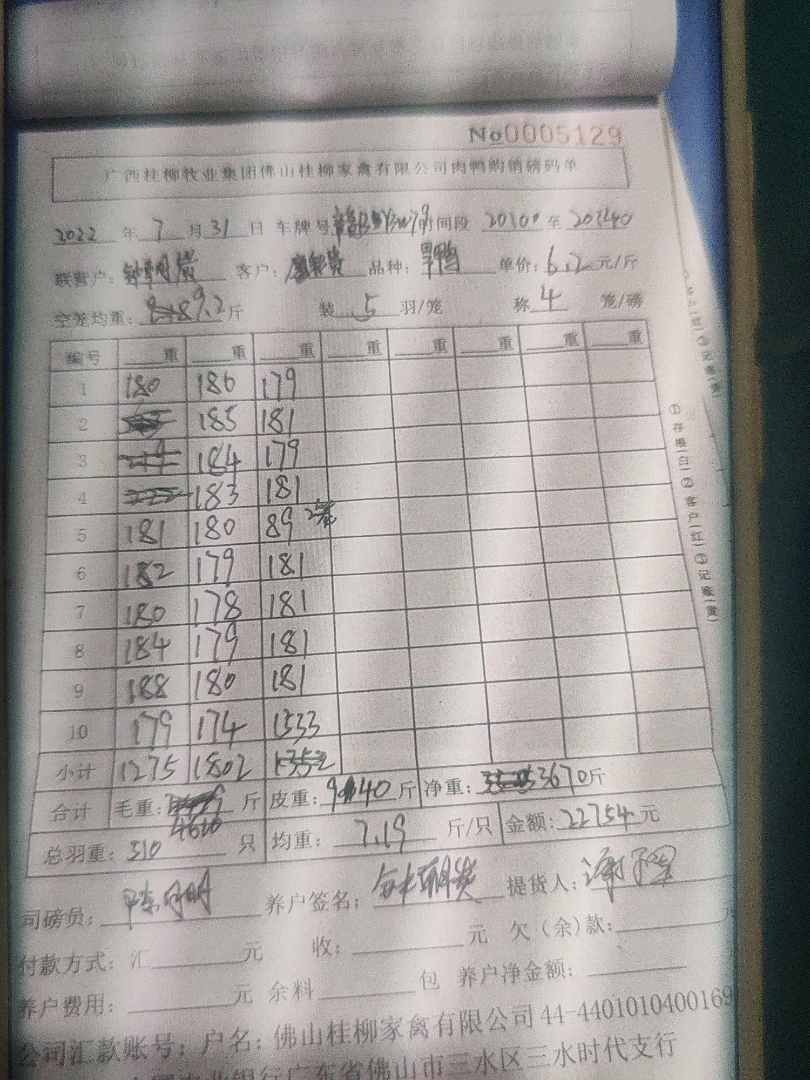 No0005129
广西桂柳牧业集团佛山桂柳家禽有限公司肉鸭购销磅码单
2022 年 7 月 31 日 车牌号 时间段 至
联营户: 客户: 品种: 旱鸭 单价: 6.2 元/斤
空笼均重: 9.2 斤 装 5 羽/笼 称 4 笼/磅
编号 重 重 重 重 重 重 重 重
1 180 186 179
2 185 181
3 184 179
4 183 181
5 181 180 89 2笼
6 182 179 181
7 180 178 181
8 184 179 181
9 188 180 181
10 179 174 1533
小计 1275 1802
合计 毛重: 4610 斤 皮重: 940 斤 净重: 3670斤
总羽重: 510 只 均重: 7.19 斤/只 金额: 22754元
司磅员: 养户签名: 提货人:
付款方式: 汇 元 收: 元 欠(余)款: 元
养户费用: 元 余料 包 养户净金额:
公司汇款账号: 户名: 佛山桂柳家禽有限公司 44-4401010400169
业银行广东省佛山市三水区三水时代支行
①存根(白)②客户(红)③记账(黄)